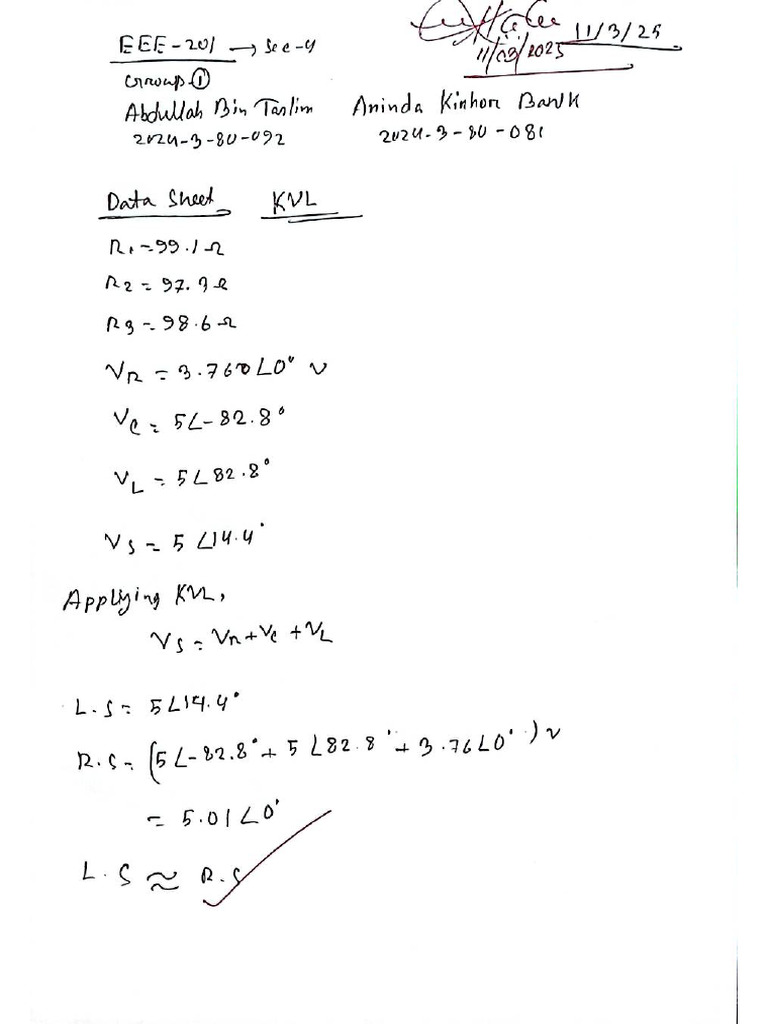 11/3/25
11/03/2025
EEE-201 → Sec-4
Group-①
Abdullah Bin Taslim Aninda Kishor Barua
2024-3-80-092 2024-3-80-081
Data Sheet KVL
R1 = 99.1 Ω
R2 = 97.3 Ω
R3 = 98.6 Ω
VR = 3.760∠0° V
VC = 5∠-82.8°
VL = 5∠82.8°
VS = 5∠14.4°
Applying KVL,
VS = VR + VC + VL
L.S = 5∠14.4°
R.S = (5∠-82.8° + 5∠82.8° + 3.76∠0°) V
= 5.01∠0°
L.S ≈ R.S